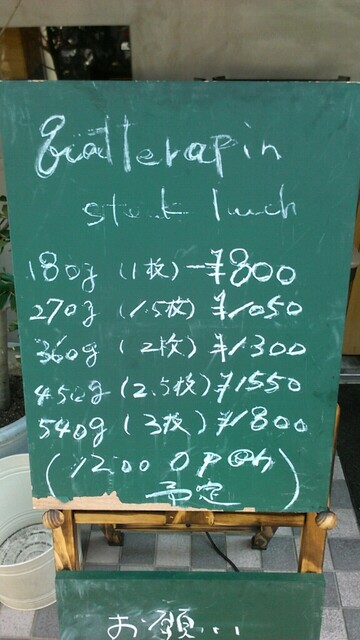 steak lunch
180g (1枚) ¥800
270g (1.5枚) ¥1050
360g (2枚) ¥1300
450g (2.5枚) ¥1550
540g (3枚) ¥1800
(1200 OPEN)
予定
お願い